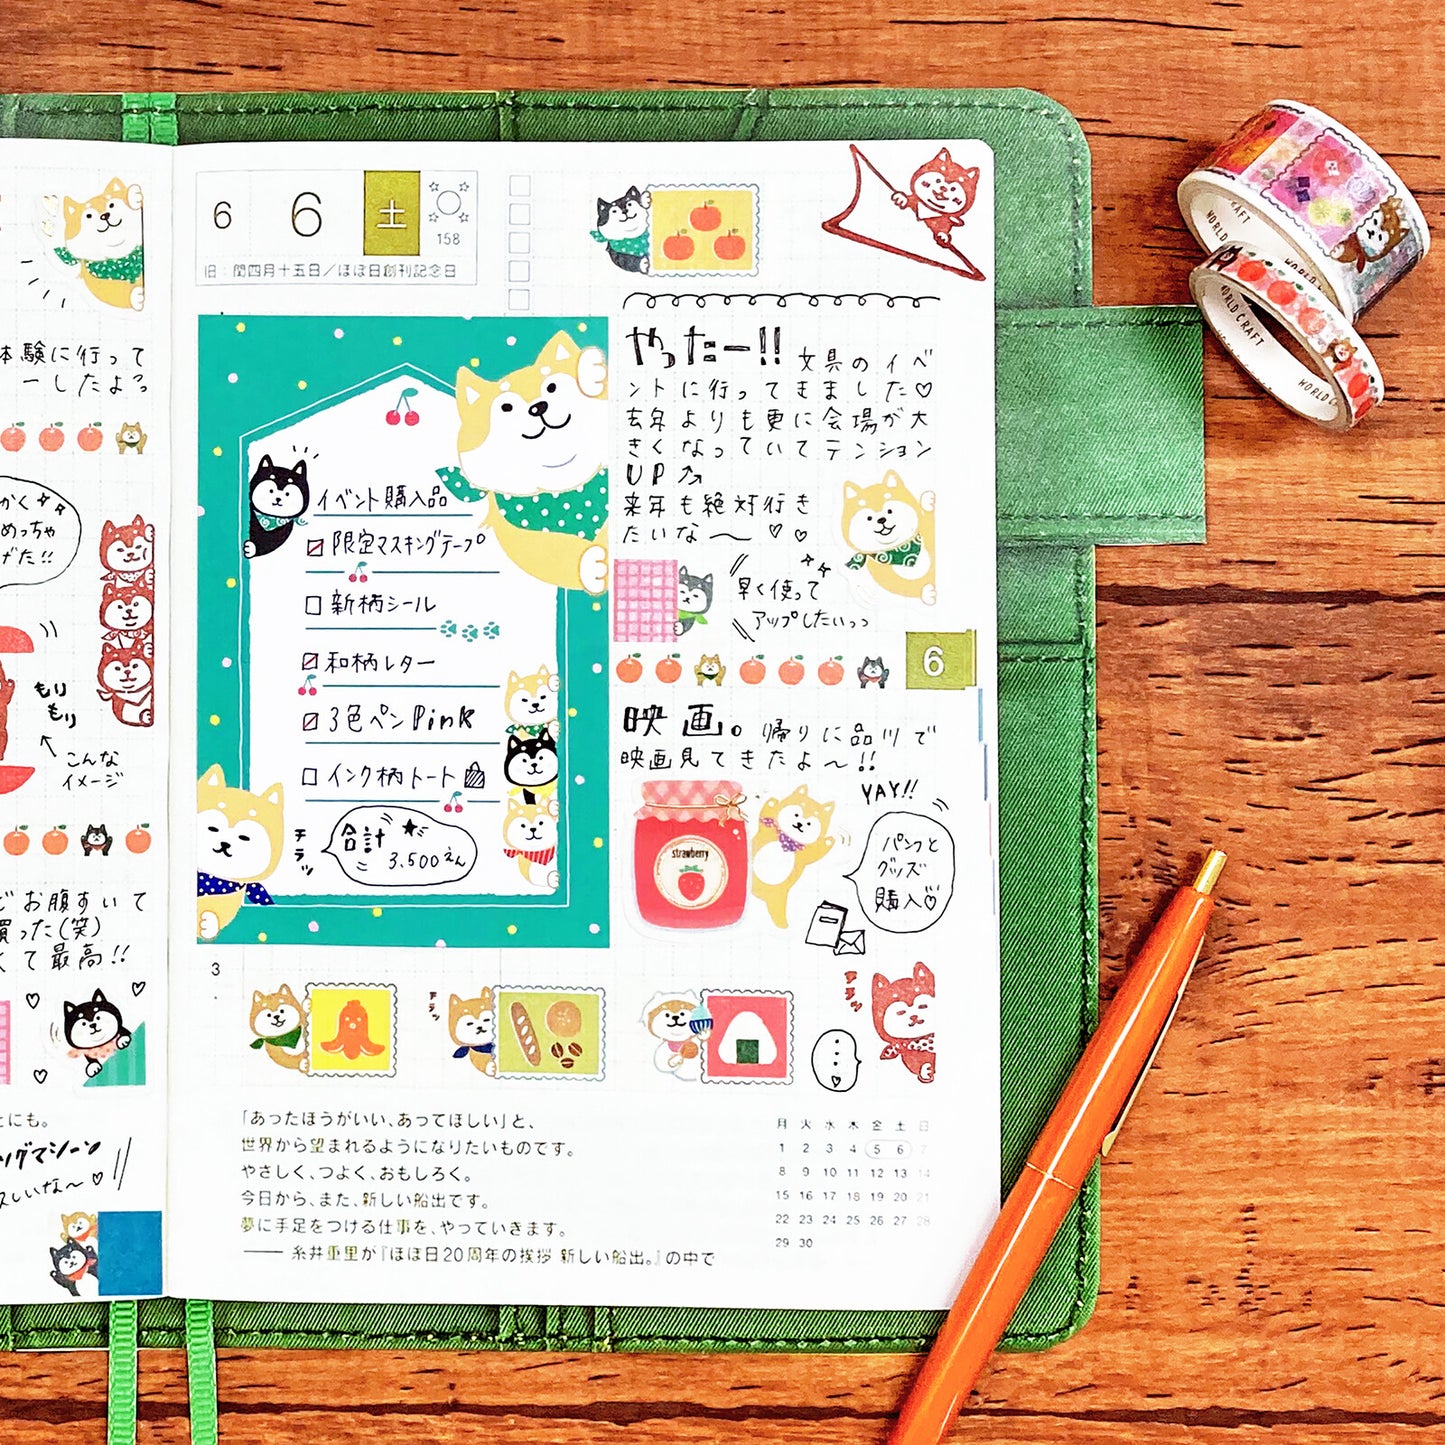 体験に行って
ーしたよ
かく
めっちゃ
げた!!
もり
もり
こんな
イメージ
どお腹すいて
買った(笑)
くて最高!!
とにも。
ングマシーン
しいな〜♡
6 6 土
158
旧:閏四月十五日/ほぼ日創刊記念日
イベント購入品
☑ 限定マスキングテープ
☐ 新柄シール
☑ 和柄レター
☑ 3色ペン Pink
☐ インク柄トート
チラッ
合計★
3,500えん
やったー!! 文具のイベ
ントに行ってきました♡
去年よりも更に会場が大
きくなっていてテンション
UP
来年も絶対行き
たいな〜
早く使って
アップしたいっっ
6
映画。帰りに品川で
映画見てきたよ〜!!
YAY!!
strawberry
パンフと
グッズ
購入♡
3
チラッ
チラッ
「あったほうがいい、あってほしい」と、
世界から望まれるようになりたいものです。
やさしく、つよく、おもしろく。
今日から、また、新しい船出です。
夢に手足をつける仕事を、やっていきます。
―― 糸井重里が『ほぼ日20周年の挨拶 新しい船出。』の中で
月 火 水 木 金 土 日
1 2 3 4 5 6 7
8 9 10 11 12 13 14
15 16 17 18 19 20 21
22 23 24 25 26 27 28
29 30
WORLD CRAFT
WORLD
WORLD CRAFT
WORLD